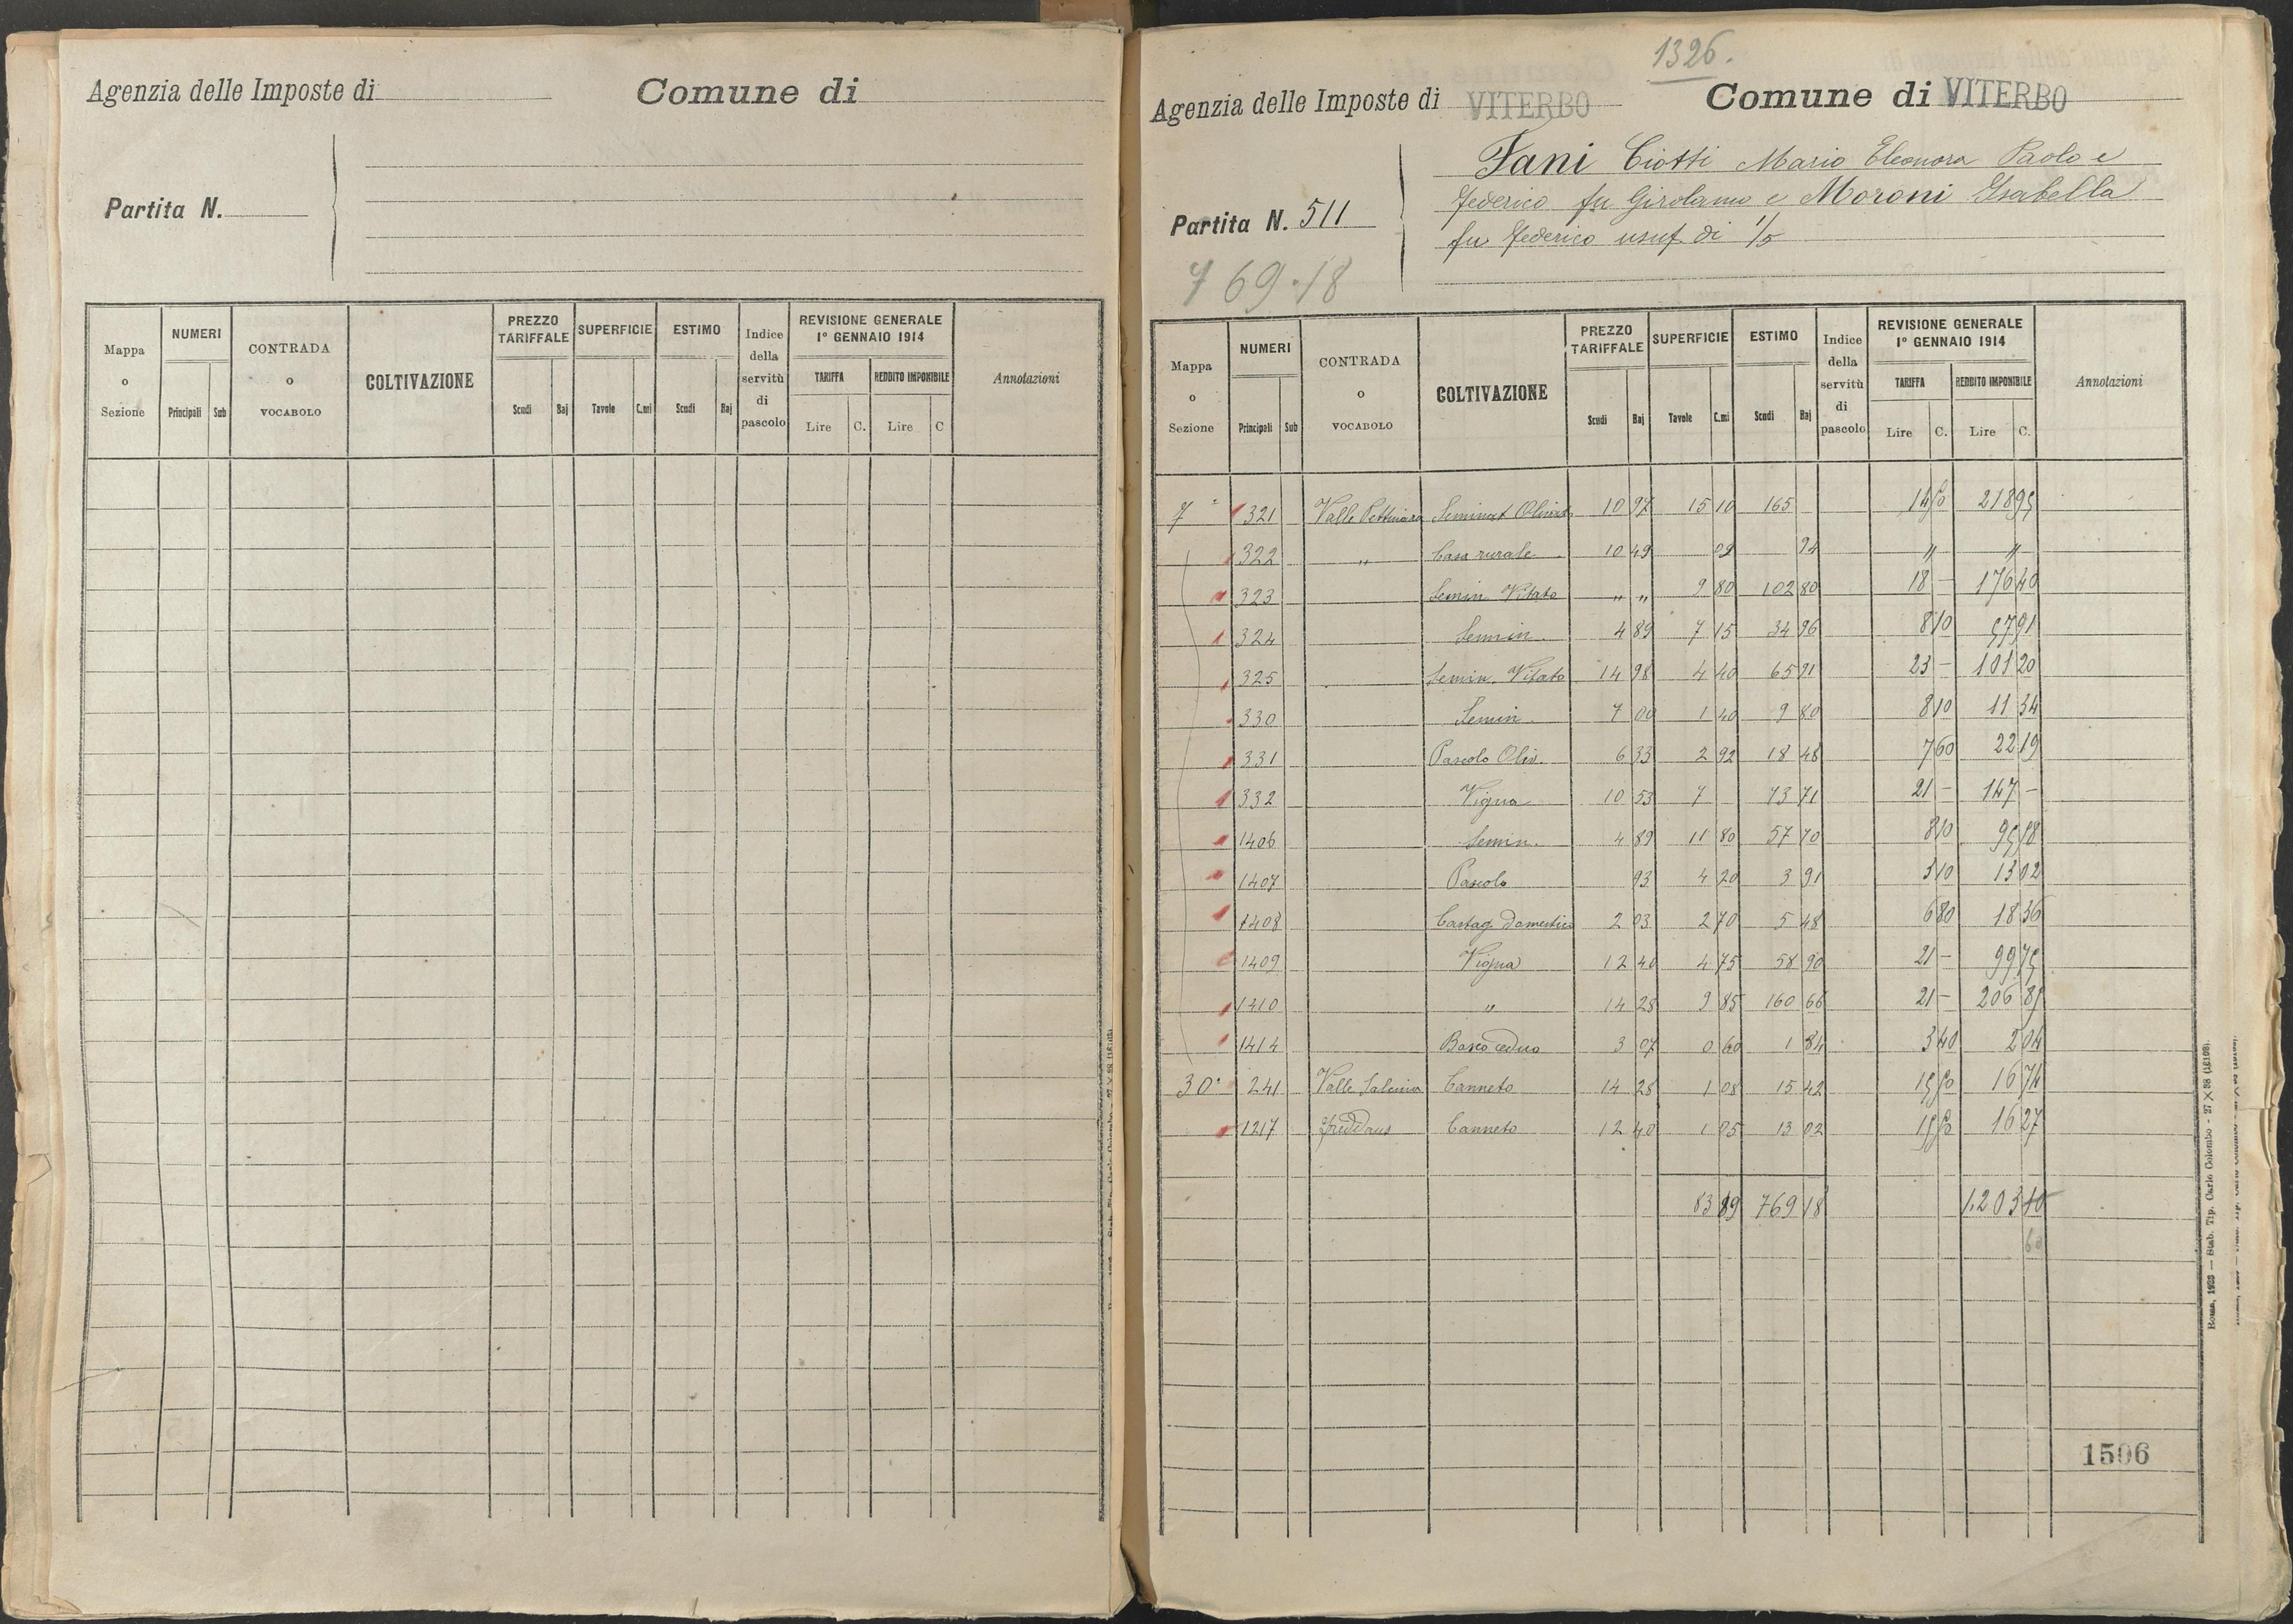 Agenzia delle Imposte di
Comune di
Partita N.
Mappa o Sezione
NUMERI
Principali Sub
CONTRADA o VOCABOLO
COLTIVAZIONE
PREZZO TARIFFALE
Scudi Baj
SUPERFICIE
Tavole C.mi
ESTIMO
Scudi Baj
Indice della servitù di pascolo
REVISIONE GENERALE 1° GENNAIO 1914
TARIFFA
Lire C.
REDDITO IMPONIBILE
Lire C
Annotazioni
1326.
Agenzia delle Imposte di VITERBO
Comune di VITERBO
Fani Ciotti Mario Eleonora Paolo e
Federico fu Girolamo e Moroni Isabella
fu Federico usuf. di 1/5
Partita N. 511
769.18
Mappa o Sezione
NUMERI
Principali Sub
CONTRADA o VOCABOLO
COLTIVAZIONE
PREZZO TARIFFALE
Scudi Baj
SUPERFICIE
Tavole C.mi
ESTIMO
Scudi Baj
Indice della servitù di pascolo
REVISIONE GENERALE 1° GENNAIO 1914
TARIFFA
Lire C.
REDDITO IMPONIBILE
Lire C.
Annotazioni
7 321 Valle Pettinara Seminat Olivat 10 97 15 10 165 14 50 218 95
322 " Casa rurale 10 49 09 94 " "
323 Semin. Vitato " " 9 80 102 80 18 — 176 40
324 Semin. 4 89 7 15 34 96 8 10 57 91
325 Semin. Vitato 14 98 4 40 65 91 23 — 101 20
330 Semin. 7 00 1 40 9 80 8 10 11 34
331 Pascolo Oliv. 6 33 2 92 18 48 7 60 22 19
332 Vigna 10 53 7 73 71 21 — 147 —
1406 Semin. 4 89 11 80 57 70 8 10 95 58
1407 Pascolo 93 4 20 3 91 3 10 13 02
1408 Castag. Domestico 2 03 2 70 5 48 6 80 18 36
1409 Vigna 12 40 4 75 58 90 21 — 99 75
1410 " 14 28 9 85 160 66 21 — 206 85
1414 Bosco ceduo 3 07 0 60 1 84 3 40 2 04
30 241 Valle Canneto 14 28 1 08 15 42 15 50 16 74
1217 Canneto 12 40 1 05 13 02 15 50 16 27
83 89 769 18 1.203 40
60
1506
Roma, 1923 — Stab. Tip. Carlo Colombo - 27 × 38 (16103).